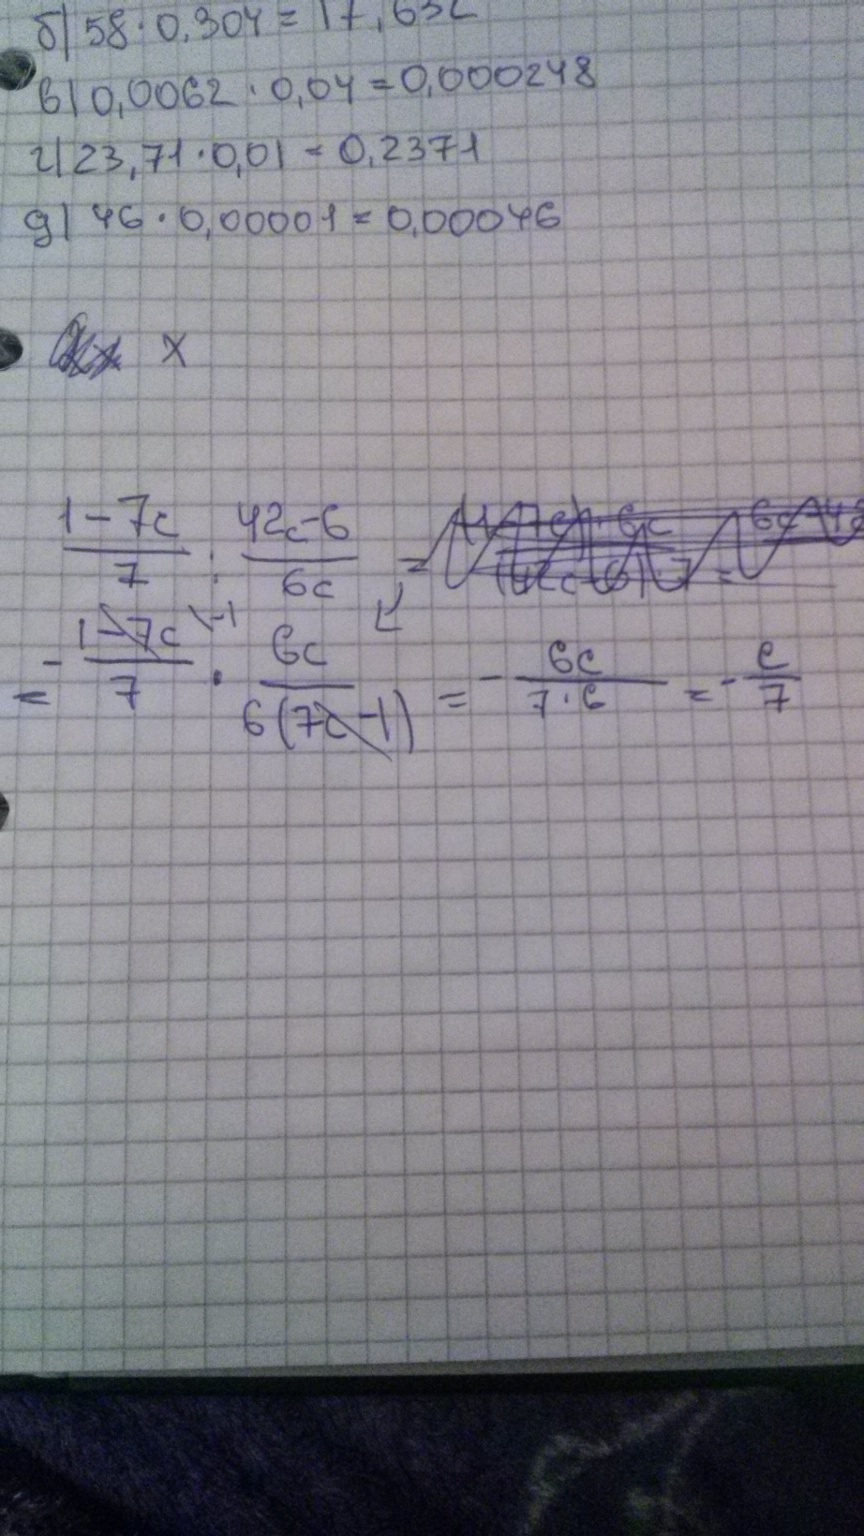 б) 58 · 0,304 = 17,632
в) 0,0062 · 0,04 = 0,000248
г) 23,71 · 0,01 = 0,2371
д) 46 · 0,00001 = 0,00046
x
1-7c/7 : 42c-6/6c =
= - 1-7c/7 \-1 · 6c/6(7c-1) = - 6c/7·6 = - c/7